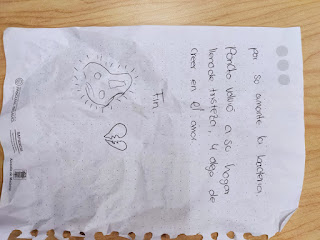 por su amante la bacteria.
Poncho volvió a su hogar
lleno de tristeza, y dejo de
creer en el amor
Fin